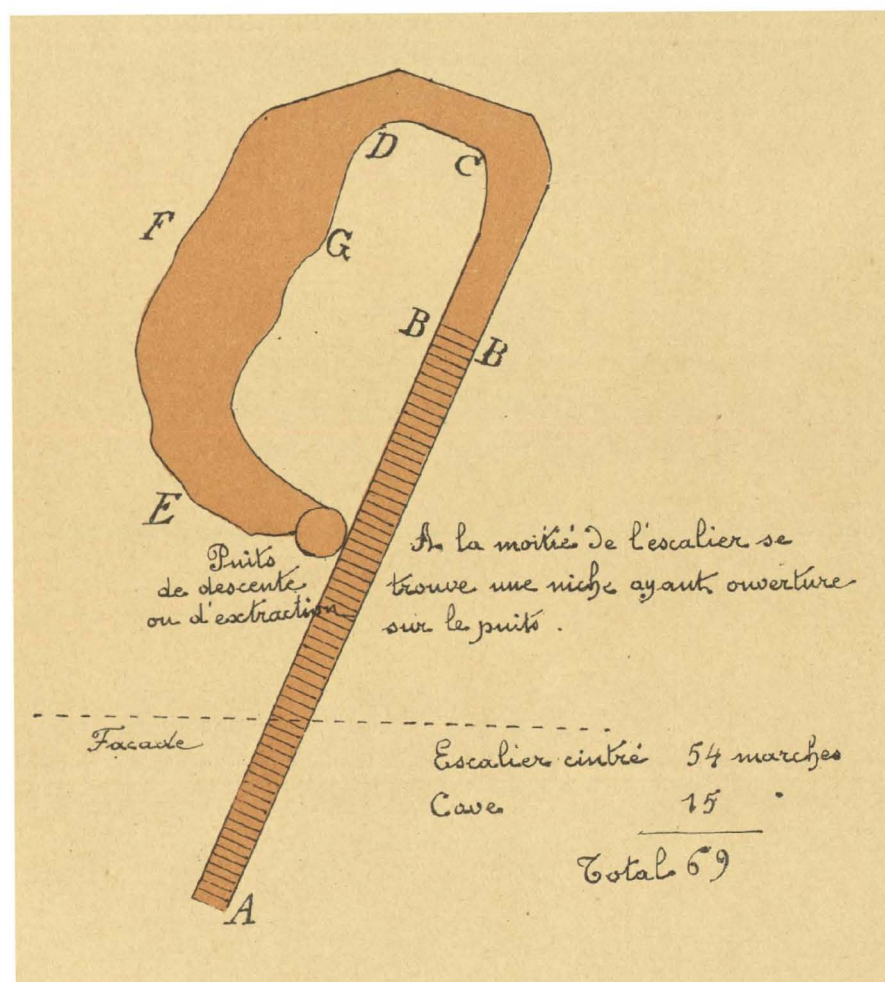 D
C
F
G
B
B
E
Puits
de descente
ou d'extraction
A la moitié de l'escalier se
trouve une niche ayant ouverture
sur le puits.
Façade
Escalier cintré 54 marches
Cave 15 "
Total 69
A